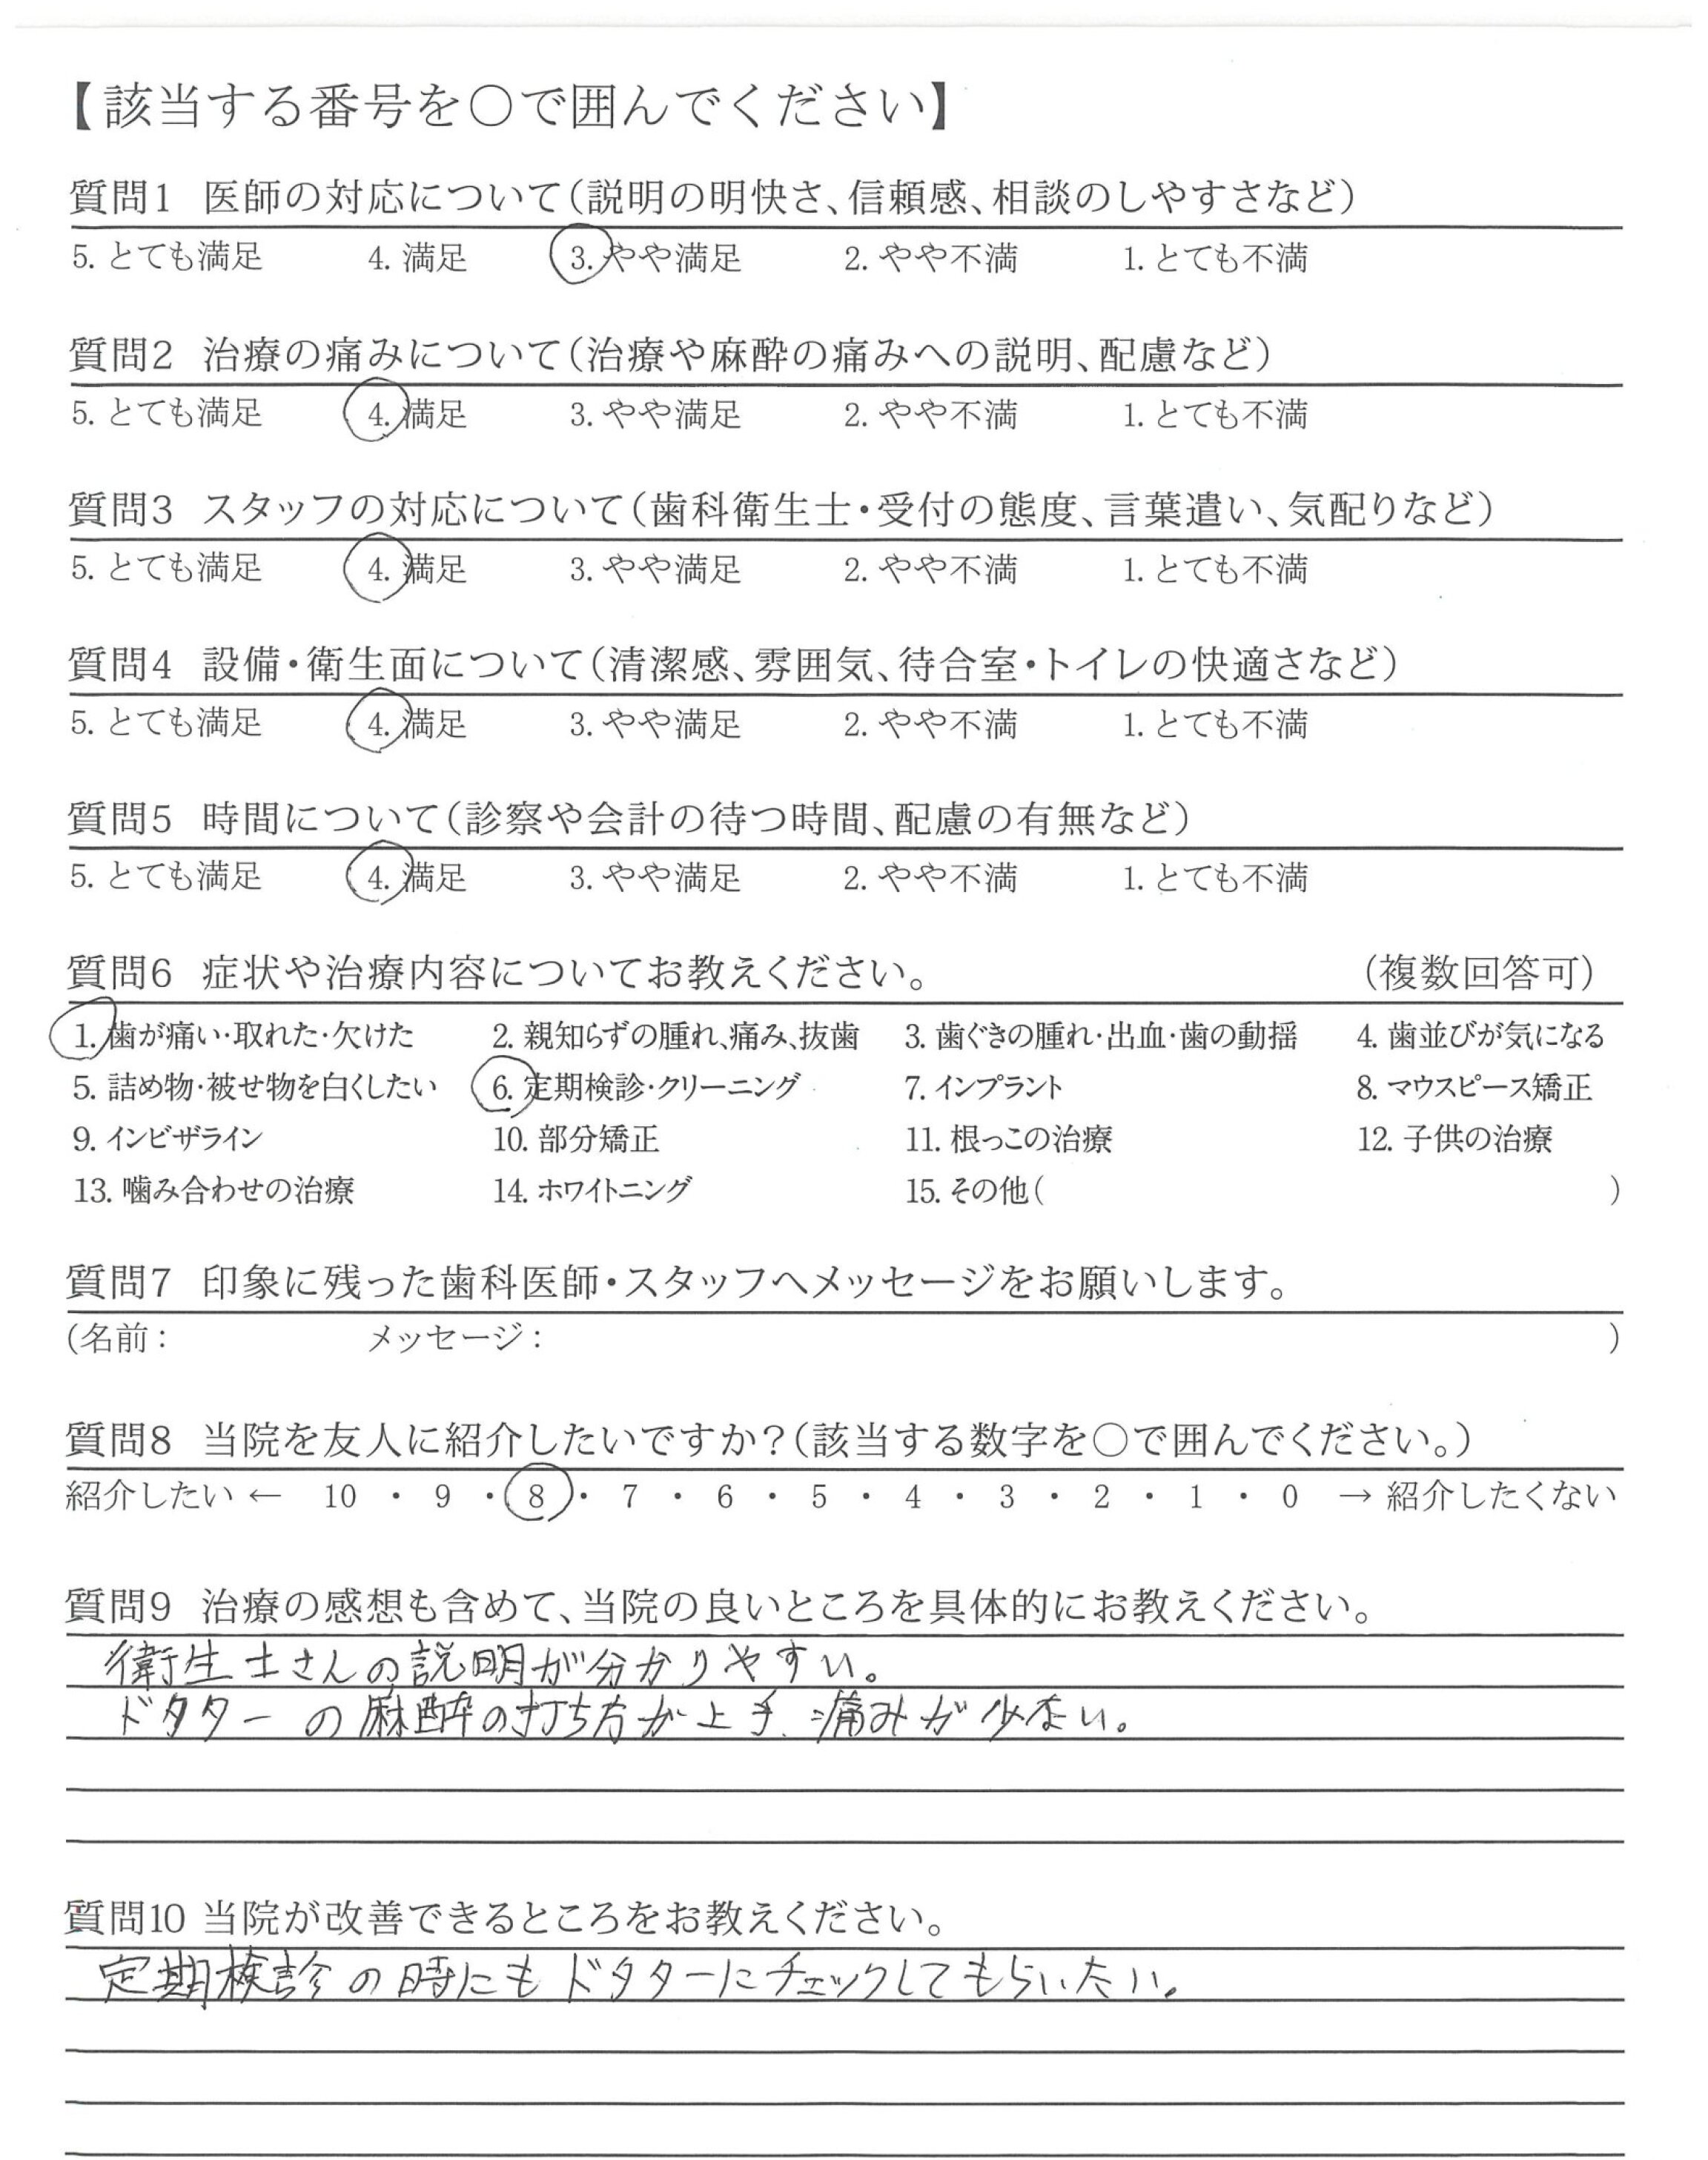 【該当する番号を○で囲んでください】
質問1 医師の対応について(説明の明快さ、信頼感、相談のしやすさなど)
5. とても満足 4. 満足 3. やや満足 2. やや不満 1. とても不満
質問2 治療の痛みについて(治療や麻酔の痛みへの説明、配慮など)
5. とても満足 4. 満足 3. やや満足 2. やや不満 1. とても不満
質問3 スタッフの対応について(歯科衛生士・受付の態度、言葉遣い、気配りなど)
5. とても満足 4. 満足 3. やや満足 2. やや不満 1. とても不満
質問4 設備・衛生面について(清潔感、雰囲気、待合室・トイレの快適さなど)
5. とても満足 4. 満足 3. やや満足 2. やや不満 1. とても不満
質問5 時間について(診察や会計の待つ時間、配慮の有無など)
5. とても満足 4. 満足 3. やや満足 2. やや不満 1. とても不満
質問6 症状や治療内容についてお教えください。 (複数回答可)
1. 歯が痛い・取れた・欠けた 2. 親知らずの腫れ、痛み、抜歯 3. 歯ぐきの腫れ・出血・歯の動揺 4. 歯並びが気になる
5. 詰め物・被せ物を白くしたい 6. 定期検診・クリーニング 7. インプラント 8. マウスピース矯正
9. インビザライン 10. 部分矯正 11. 根っこの治療 12. 子供の治療
13. 噛み合わせの治療 14. ホワイトニング 15. その他( )
質問7 印象に残った歯科医師・スタッフへメッセージをお願いします。
(名前: メッセージ: )
質問8 当院を友人に紹介したいですか?(該当する数字を○で囲んでください。)
紹介したい ← 10 ・ 9 ・ 8 ・ 7 ・ 6 ・ 5 ・ 4 ・ 3 ・ 2 ・ 1 ・ 0 → 紹介したくない
質問9 治療の感想も含めて、当院の良いところを具体的にお教えください。
衛生士さんの説明が分かりやすい。
ドクターの麻酔の打ち方が上手、痛みが少ない。
質問10 当院が改善できるところをお教えください。
定期検診の時にもドクターにチェックしてもらいたい。